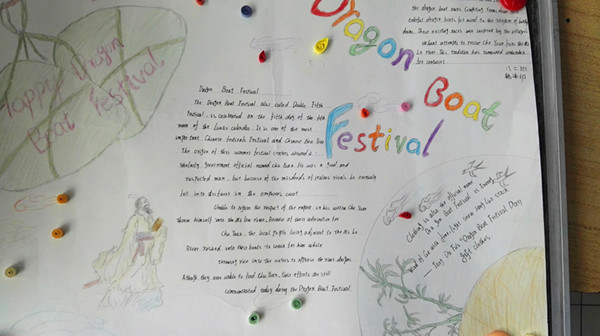 Happy Dragon
Boat Festival
Dragon
Boat
Festival
the dragon boat races
colorful dragon boats
These exciting races were inspired by the villager's
valiant attempts to rescue Chu Yuan from the Mi
Lo river. This tradition has remained unbroken
for centuries.
Dragon Boat Festival
The Dragon Boat Festival, also called Double Fifth
Festival, is celebrated on the fifth day of the fifth
moon of the lunar calendar. It is one of the most
important Chinese festivals
The origin of this summer festival centers around a
scholarly government official named Chu Yuan. He was a good and
respected man, but because of the misdeeds of jealous rivals he eventually
fell into disfavor in the emperor's court.
Unable to regain the respect of the emperor, in his sorrow Chu Yuan
threw himself into the Mi Low river. Because of their admiration for
Chu Yuan, the local people living adjacent to the Mi Lo
River rushed into their boats to search for him while
throwing rice into the waters to appease the river dragon.
Although they were unable to find Chu Yuan, their efforts are still
commemorated today during the Dragon Boat Festival.
Clothing is also the official name
Dragon Boat Festival is
"Dragon Boat Festival Day
gift clothes"